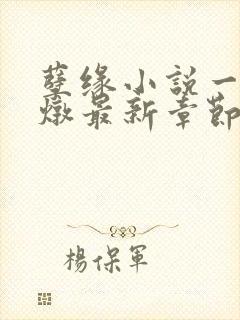 孽缘小說一
燉最新章節
楊保軍